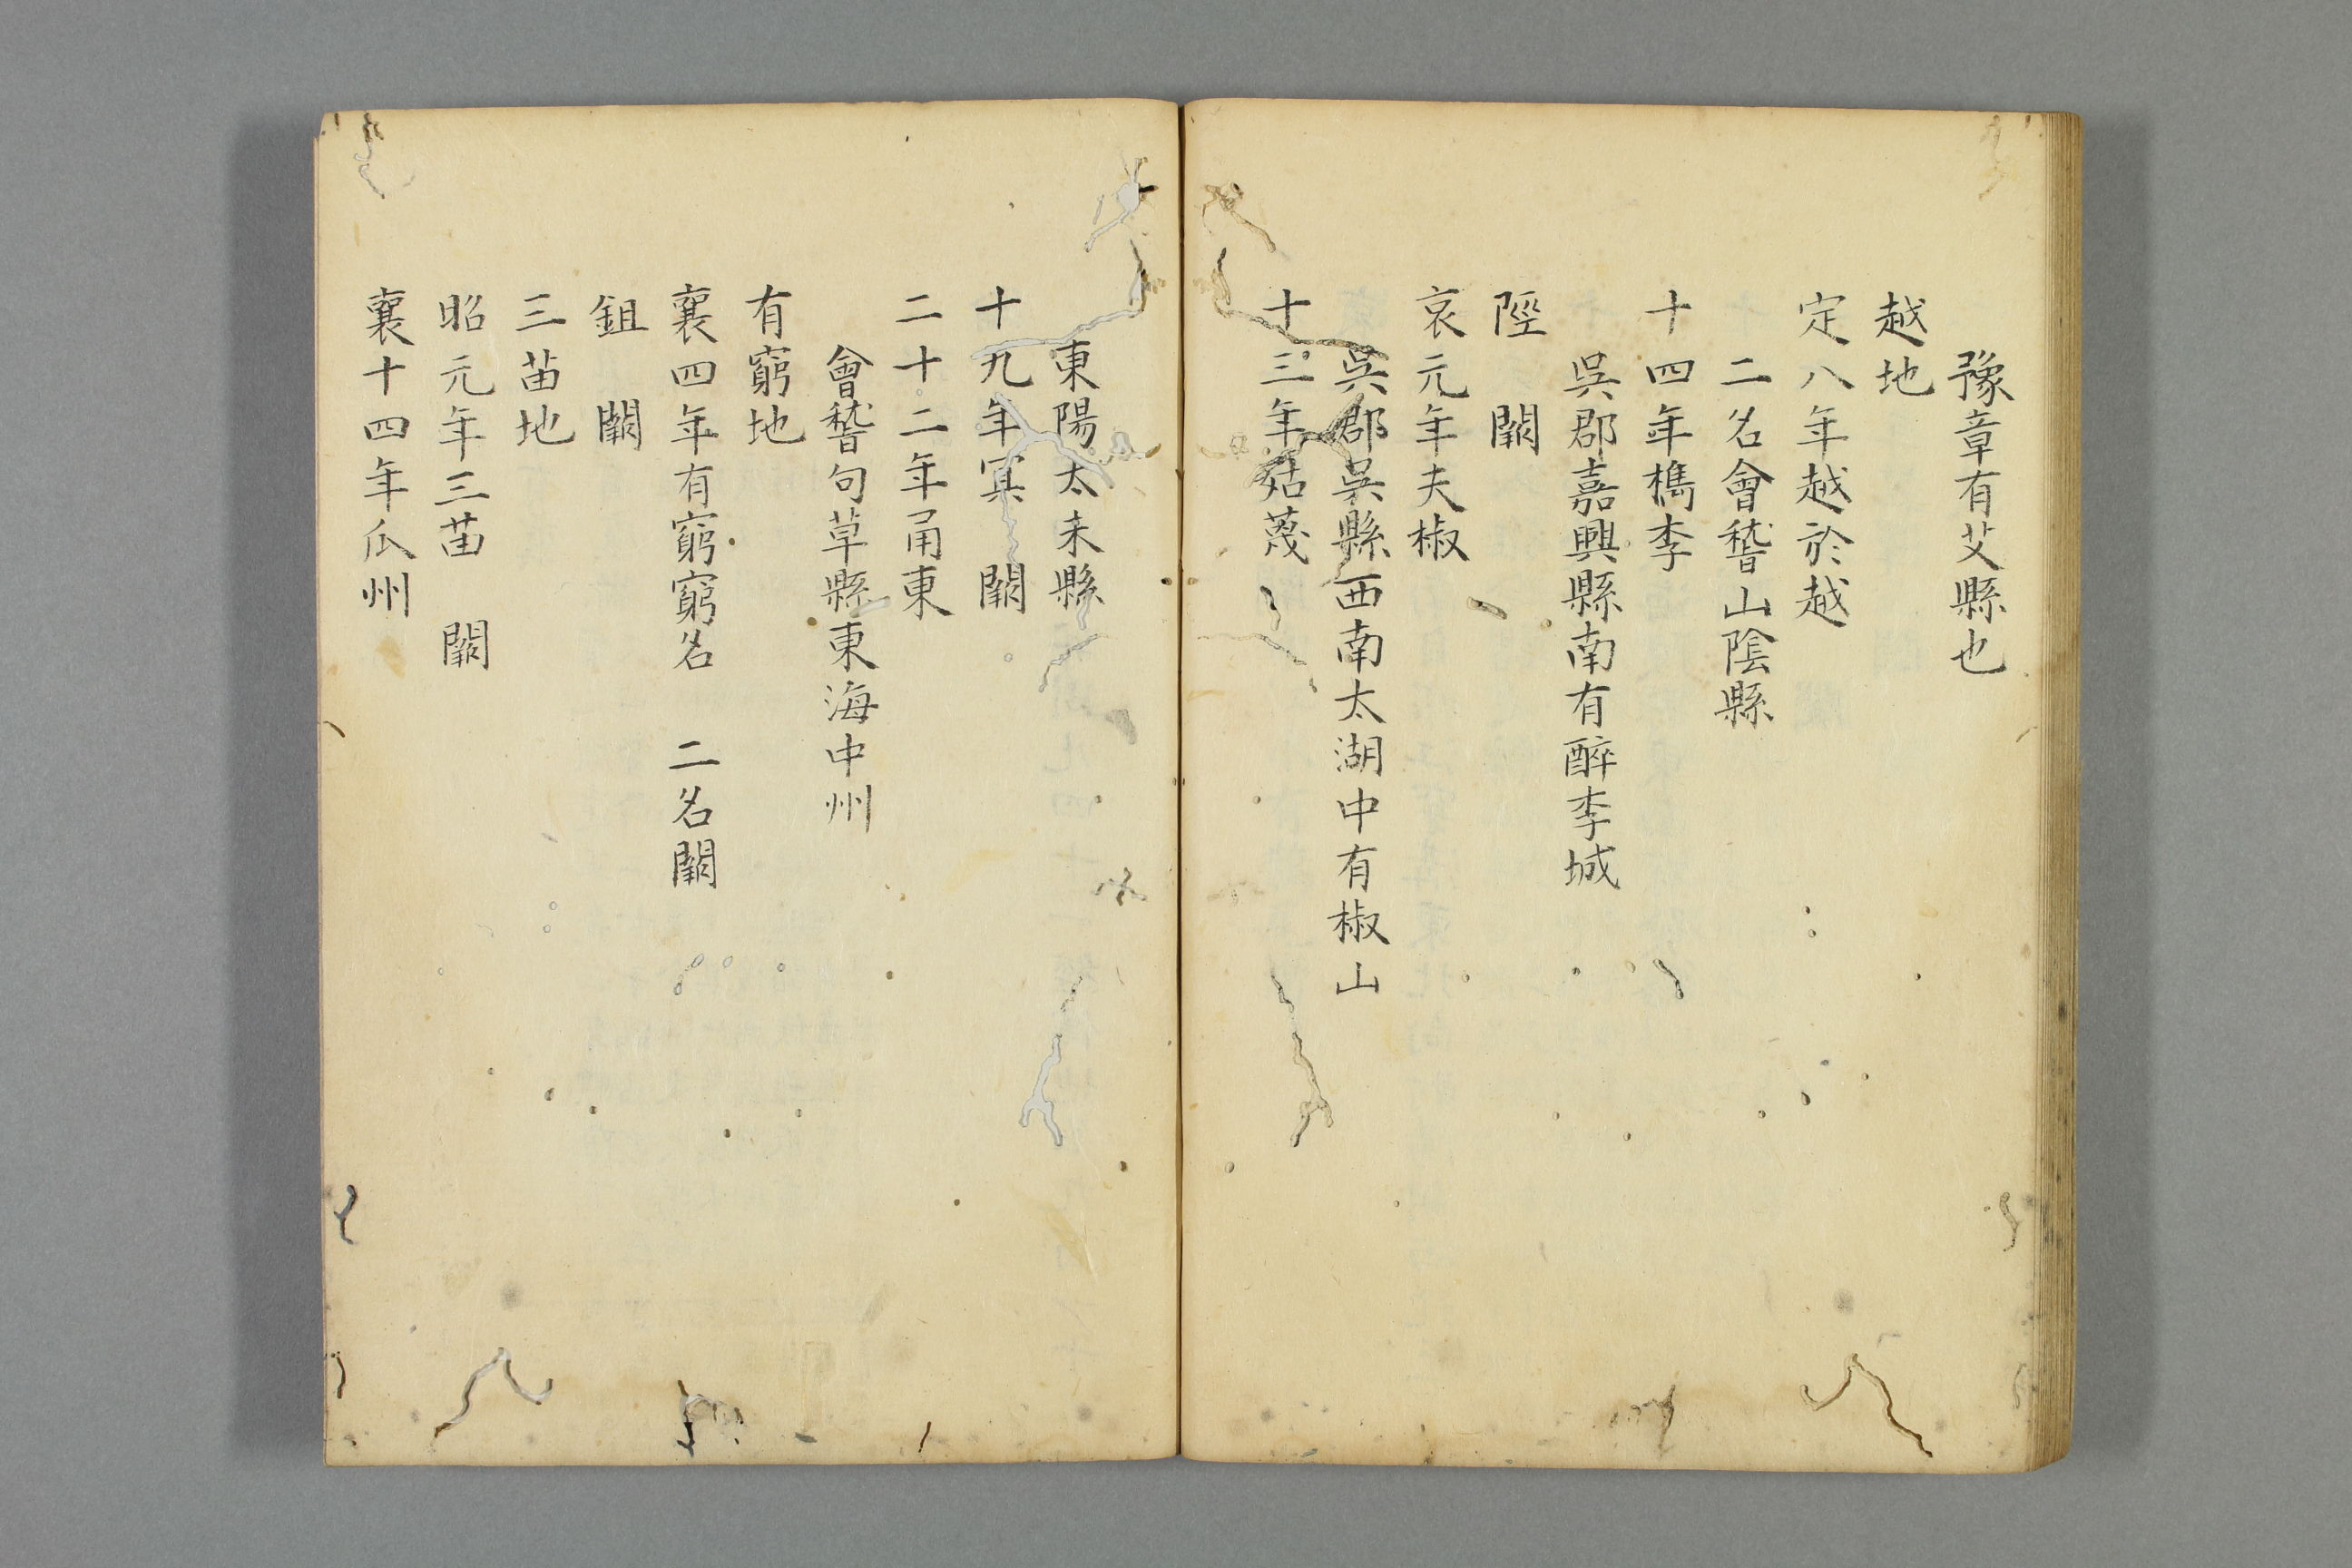 豫章有艾縣也
越地
定八年越於越
二名會稽山陰縣
十四年檇李
吳郡嘉興縣南有醉李城
陘　闕
哀元年夫椒
吳郡吳縣西南太湖中有椒山
十三年姑蔑
東陽太末縣
十九年冥　闕
二十二年甬東
會稽句章縣東海中州
有窮地
襄四年有窮窮名　二名闕
鉏　闕
三苗地
昭元年三苗　闕
襄十四年瓜州